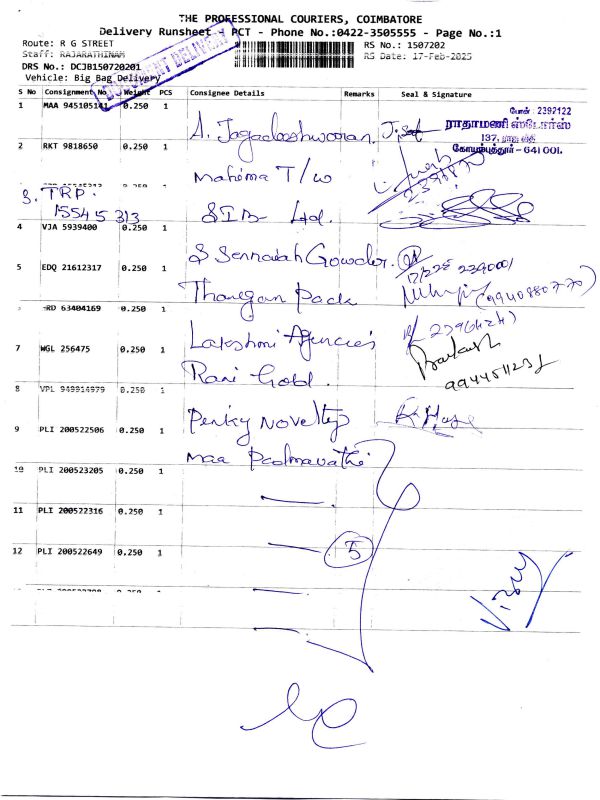 THE PROFESSIONAL COURIERS, COIMBATORE
Delivery Runsheet - PCT - Phone No.:0422-3505555 - Page No.:1
Route: R G STREET RS No.: 1507202
Staff: RAJARATHINAM RS Date: 17-Feb-2025
DRS No.: DCJB150720201
Vehicle: Big Bag Delivery
DOCUMENT DELIVERY
S No Consignment No Weight PCS Consignee Details Remarks Seal & Signature
1 MAA 945105141 0.250 1
A. Jagadeeshwaran.
போன் : 2392122
ராதாமணி ஸ்டோர்ஸ்
137, ராஜ வீதி
கோயமுத்தூர் - 641 001.
2 RKT 9818650 0.250 1
Mahima T/w
3. TRP.
15545313
SIB Ltd.
4 VJA 5939400 0.250 1
S Sennaiah Gowder.
5 EDQ 21612317 0.250 1
17/2/25 2390001
Thangan Pack (9940880770)
TRD 63404169 0.250 1
Lakshmi Agencies
7 WGL 256475 0.250 1
Prakash
Rani Gold.
8 VPL 949914979 0.250 1
Penky Novelty
9 PLI 200522506 0.250 1
Maa Padmavathi
10 PLI 200523205 0.250 1
11 PLI 200522316 0.250 1
5
12 PLI 200522649 0.250 1
Vijay